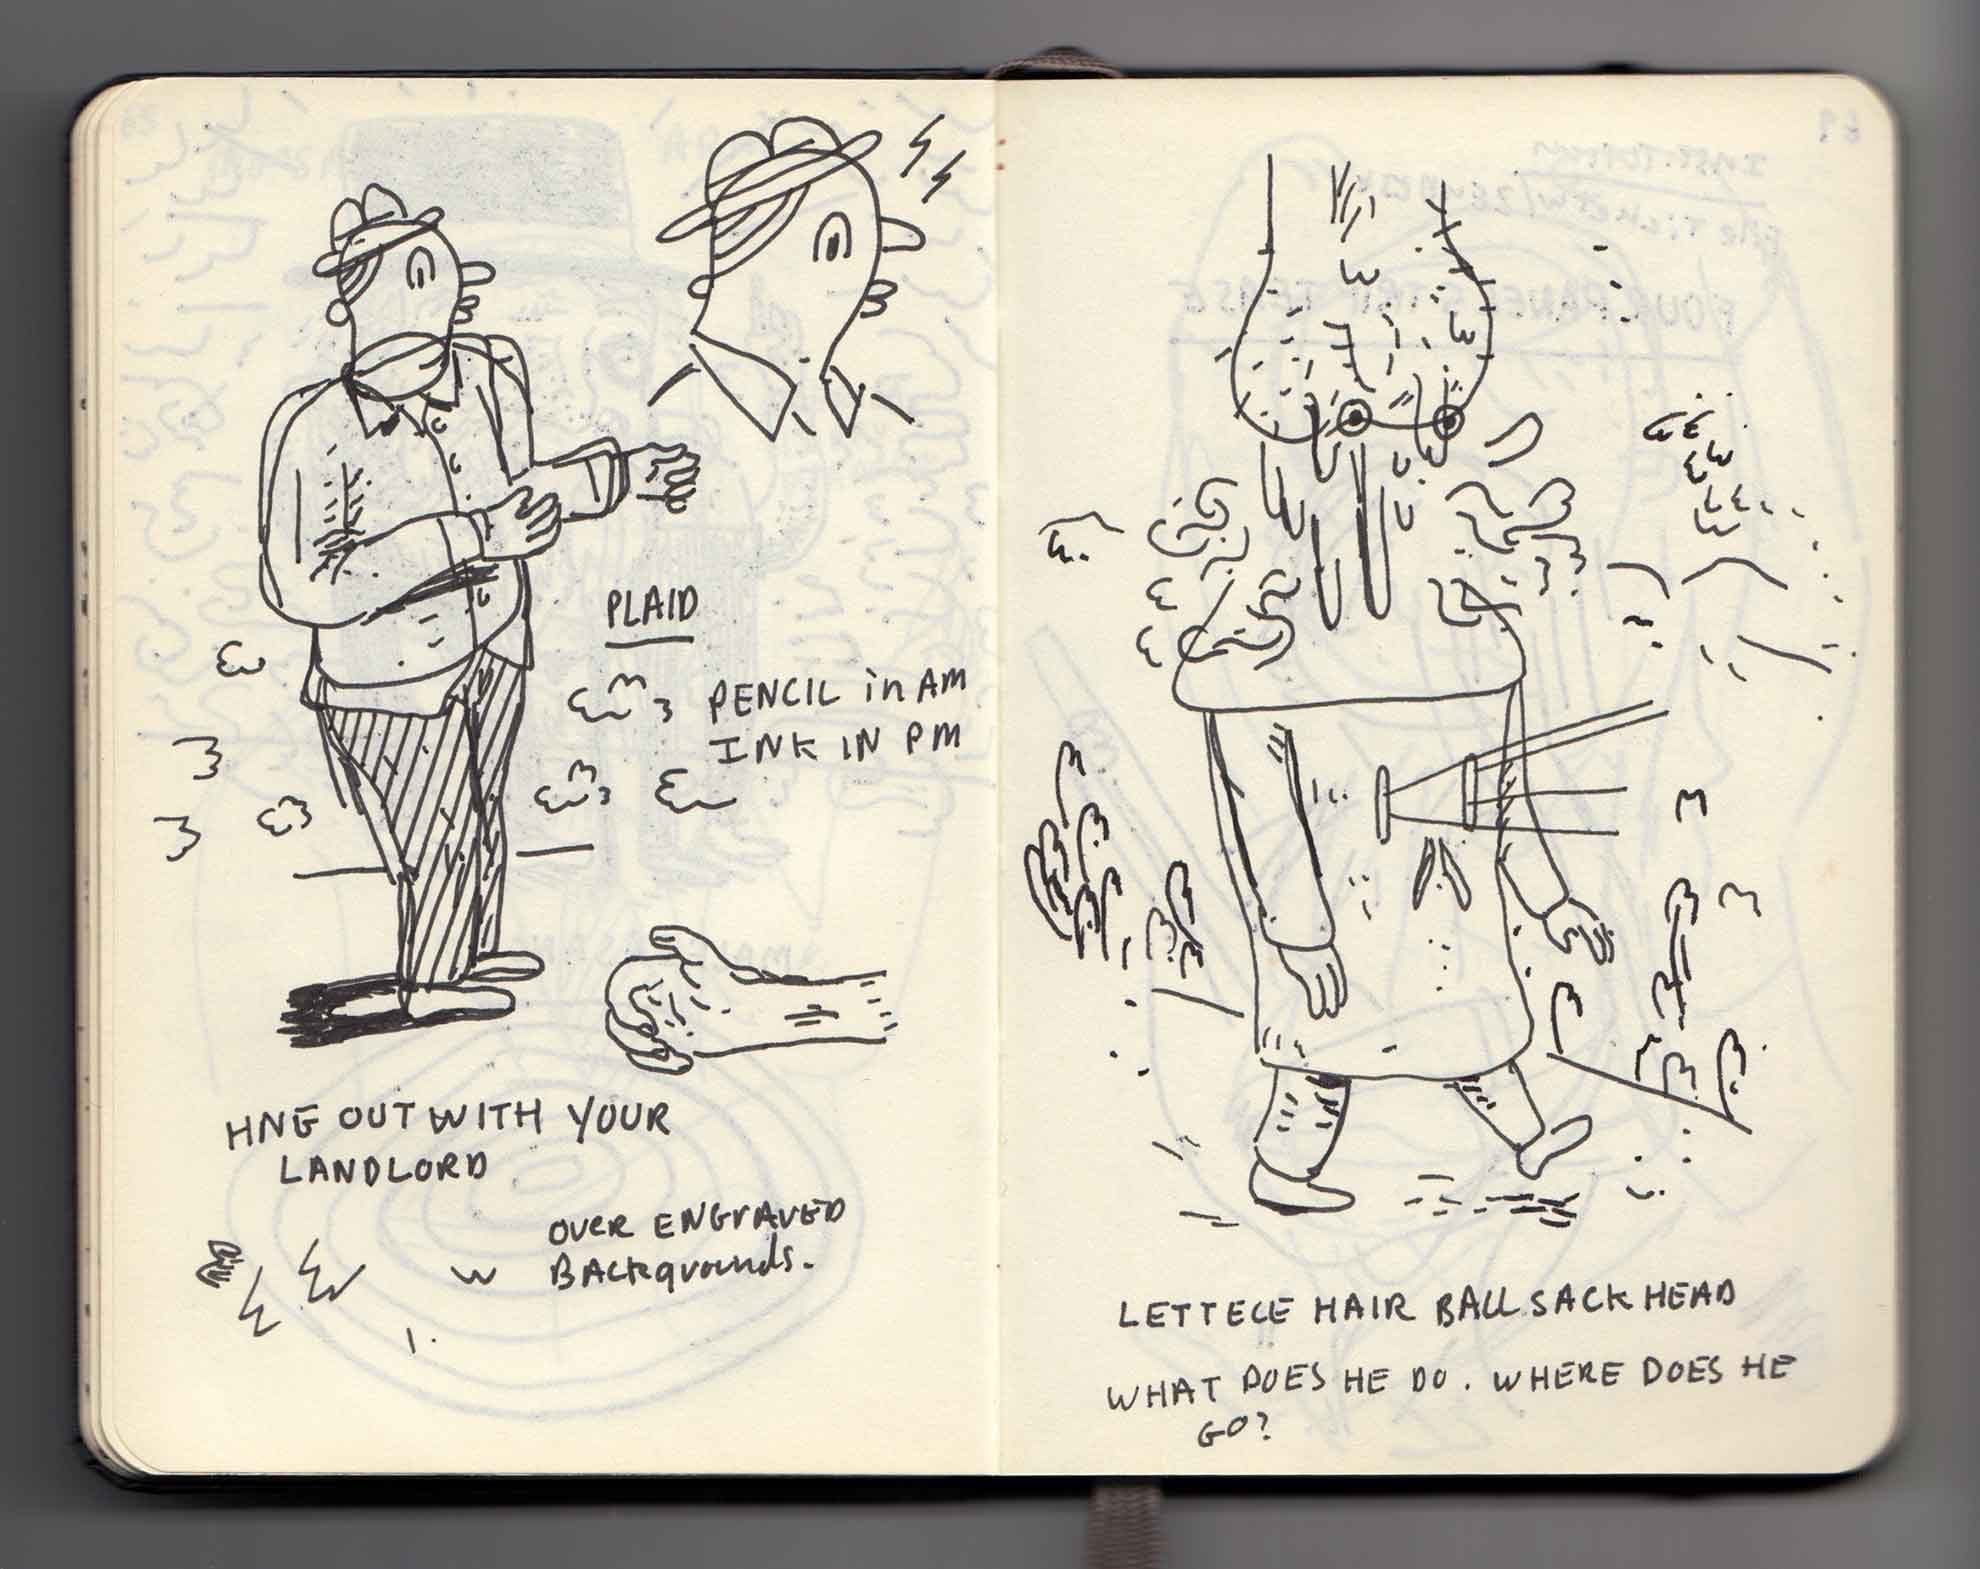 PLAID
PENCIL in AM
INK IN PM
HNG OUT WITH YOUR
LANDLORD
OVER ENGRAVED
BACKgrounds.
LETTECE HAIR BALL SACK HEAD
WHAT DOES HE DO. WHERE DOES HE
GO?